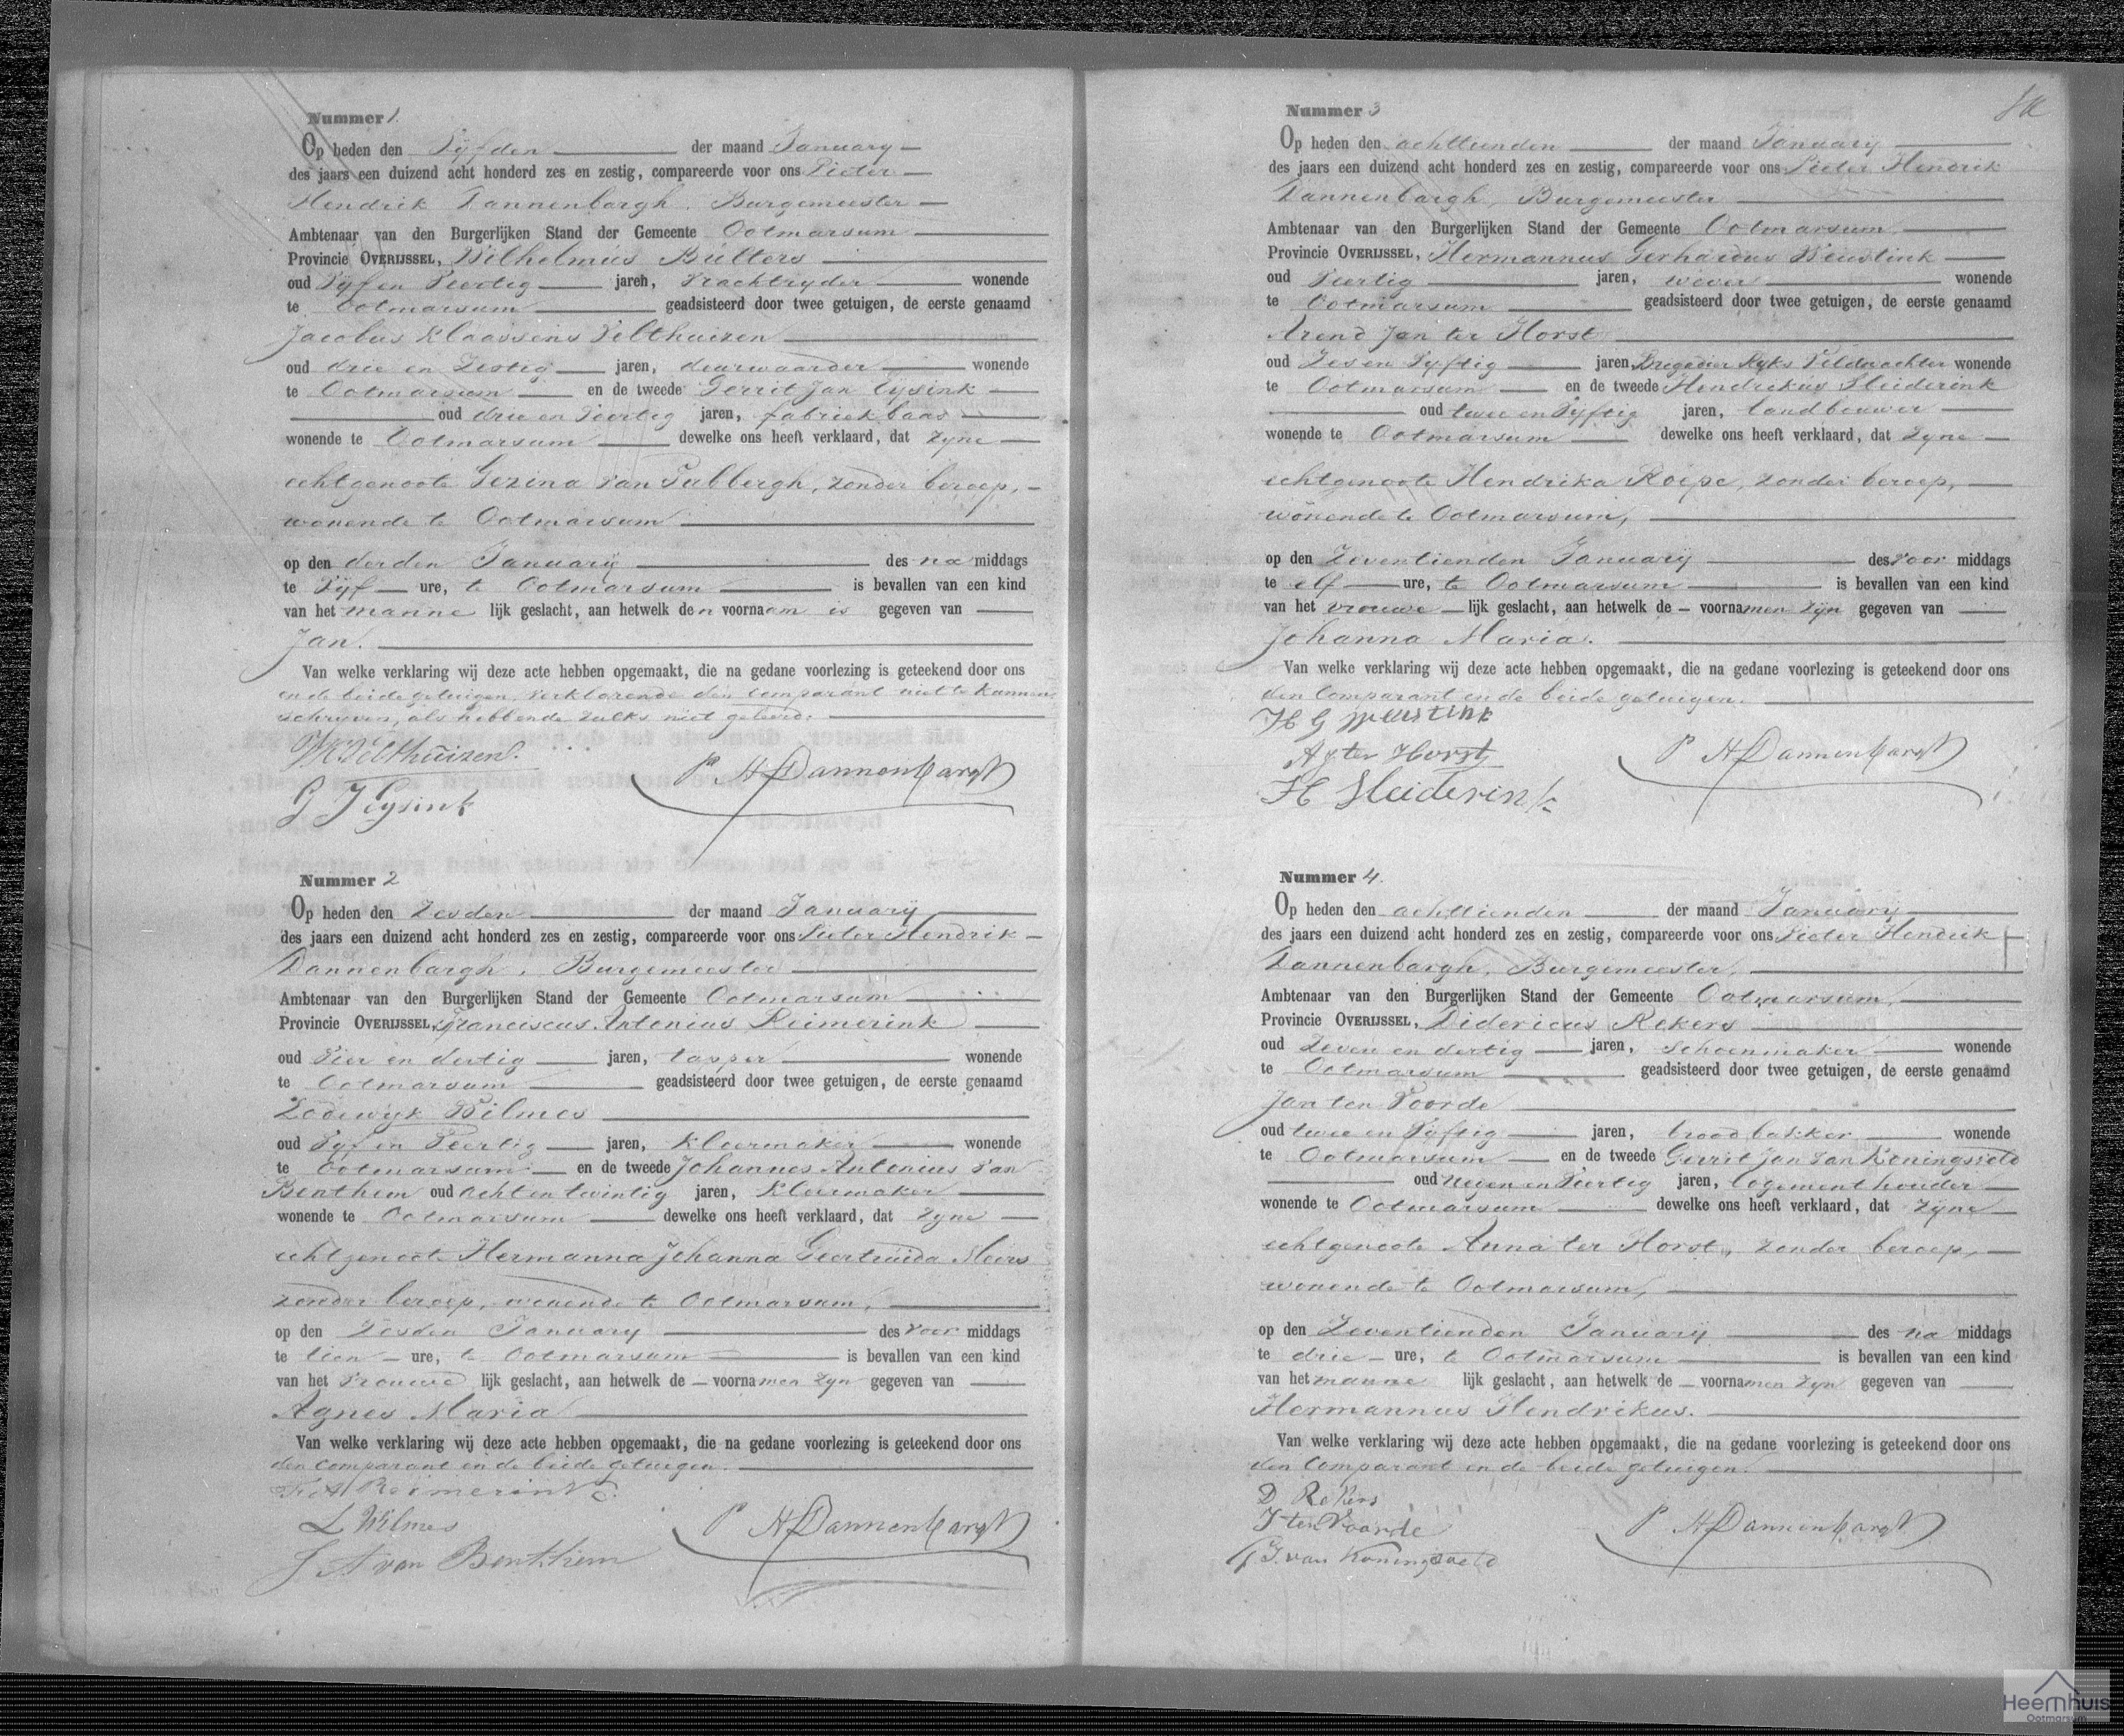 Nummer 1.
Op heden den Vijfden der maand January
des jaars een duizend acht honderd zes en zestig, compareerde voor ons Pieter
Hendrik Dannenbargh, Burgemeester
Ambtenaar van den Burgerlijken Stand der Gemeente Ootmarsum
Provincie OVERIJSSEL, Wilhelmus Bulters
oud Vijf en Veertig jaren, Vrachtryder wonende
te Ootmarsum geadsisteerd door twee getuigen, de eerste genaamd
Jacobus Klaassens Velthuizen
oud drie en Zestig jaren, deurwaarder wonende
te Ootmarsum en de tweede Gerrit Jan
oud drie en Veertig jaren, fabriekbaas
wonende te Ootmarsum dewelke ons heeft verklaard, dat zyne
echtgenoote Gezina van, zonder beroep,
wonende te Ootmarsum
op den derden January des na middags
te Vyf ure, te Ootmarsum is bevallen van een kind
van het manne lijk geslacht, aan hetwelk den voornaam is gegeven van
Jan.
Van welke verklaring wij deze acte hebben opgemaakt, die na gedane voorlezing is geteekend door ons
en de beide getuigen, verklarende den comparant niet te kunnen
schryven, als hebbende zulks niet geleerd.
Velthuizen.
P H Dannenbargh
G J
Nummer 2
Op heden den Zesden der maand January
des jaars een duizend acht honderd zes en zestig, compareerde voor ons Pieter Hendrik
Dannenbargh, Burgemeester
Ambtenaar van den Burgerlijken Stand der Gemeente Ootmarsum
Provincie OVERIJSSEL, Franciscus Antonius Reimerink
oud Vier en dertig jaren, tapper wonende
te Ootmarsum geadsisteerd door twee getuigen, de eerste genaamd
Lodewyk Wilmes
oud Vyf en Veertig jaren, kleermaker wonende
te Ootmarsum en de tweede Johannes Antonius van
Benthem oud acht en twintig jaren, kleermaker
wonende te Ootmarsum dewelke ons heeft verklaard, dat zyne
echtgenoote Hermanna Johanna Geertruida
zonder beroep, wonende te Ootmarsum,
op den Zesden January des voor middags
te tien ure, te Ootmarsum is bevallen van een kind
van het Vrouwe lijk geslacht, aan hetwelk de voornamen zyn gegeven van
Agnes Maria
Van welke verklaring wij deze acte hebben opgemaakt, die na gedane voorlezing is geteekend door ons
den comparant en de beide getuigen.
F A Reimerink
L Wilmes
P H Dannenbargh
J A van Benthem
Nummer 3
Op heden den achttienden der maand January
des jaars een duizend acht honderd zes en zestig, compareerde voor ons Pieter Hendrik
Dannenbargh, Burgemeester
Ambtenaar van den Burgerlijken Stand der Gemeente Ootmarsum
Provincie OVERIJSSEL, Hermannus Gerhardus Weustink
oud Veertig jaren, wever wonende
te Ootmarsum geadsisteerd door twee getuigen, de eerste genaamd
Arend Jan ter Horst
oud Zes en Vyftig jaren Brigadier Ryks Veldwachter wonende
te Ootmarsum en de tweede Hendrikus Sleiderink
oud twee en Vyftig jaren, landbouwer
wonende te Ootmarsum dewelke ons heeft verklaard, dat zyne
echtgenoote Hendrika Roepe, zonder beroep,
wonende te Ootmarsum,
op den Zeventienden January des voor middags
te elf ure, te Ootmarsum is bevallen van een kind
van het vrouwe lijk geslacht, aan hetwelk de voornamen zyn gegeven van
Johanna Maria.
Van welke verklaring wij deze acte hebben opgemaakt, die na gedane voorlezing is geteekend door ons
den Comparant en de beide getuigen.
H G Weustink
A J ter Horst
P H Dannenbargh
H Sleiderink
Nummer 4.
Op heden den achttienden der maand January
des jaars een duizend acht honderd zes en zestig, compareerde voor ons Pieter Hendrik
Dannenbargh, Burgemeester,
Ambtenaar van den Burgerlijken Stand der Gemeente Ootmarsum
Provincie OVERIJSSEL, Didericus Rekers
oud Zeven en dertig jaren, schoenmaker wonende
te Ootmarsum geadsisteerd door twee getuigen, de eerste genaamd
Jan ten Voorde
oud twee en Vyftig jaren, broodbakker wonende
te Ootmarsum en de tweede Gerrit Jan van Koningsveld
oud negen en Veertig jaren, logementhouder
wonende te Ootmarsum dewelke ons heeft verklaard, dat zyne
echtgenoote Anna ter Horst, zonder beroep,
wonende te Ootmarsum,
op den Zeventienden January des na middags
te drie ure, te Ootmarsum is bevallen van een kind
van het manne lijk geslacht, aan hetwelk de voornamen zyn gegeven van
Hermannus Hendrikus.
Van welke verklaring wij deze acte hebben opgemaakt, die na gedane voorlezing is geteekend door ons
den Comparant en de beide getuigen.
D Rekers
J ten Voorde
P H Dannenbargh
G J. van Koningsveld
Heemhuis
Ootmarsum